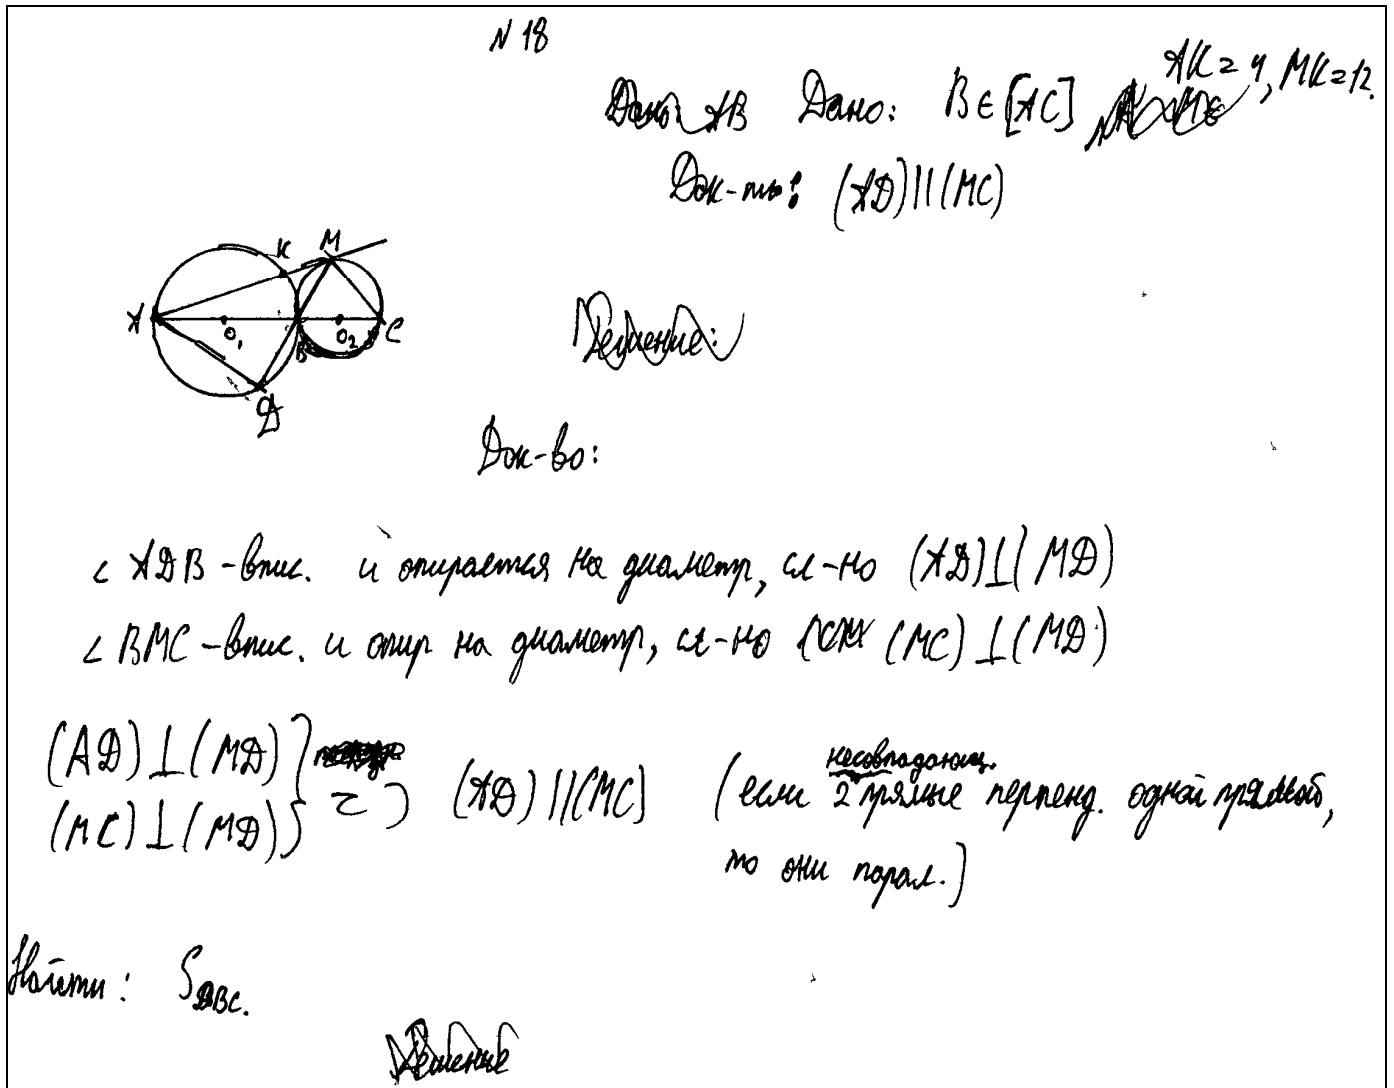 N 18
AK = 4, MK = 12.
Дано: B ∈ [AC]
Док-ть: (AD) || (MC)
K M
A O₁ B O₂ C
D
Решение:
Док-во:
∠ ADB - впис. и опирается на диаметр, сл-но (AD) ⊥ (MD)
∠ BMC - впис. и опир на диаметр, сл-но (MC) ⊥ (MD)
(AD) ⊥ (MD) } => (AD) || (MC) (если 2 несовпадающ. прямые перпенд. одной прямой,
(MC) ⊥ (MD) }
то они парал.)
Найти: S DBC.
Решение